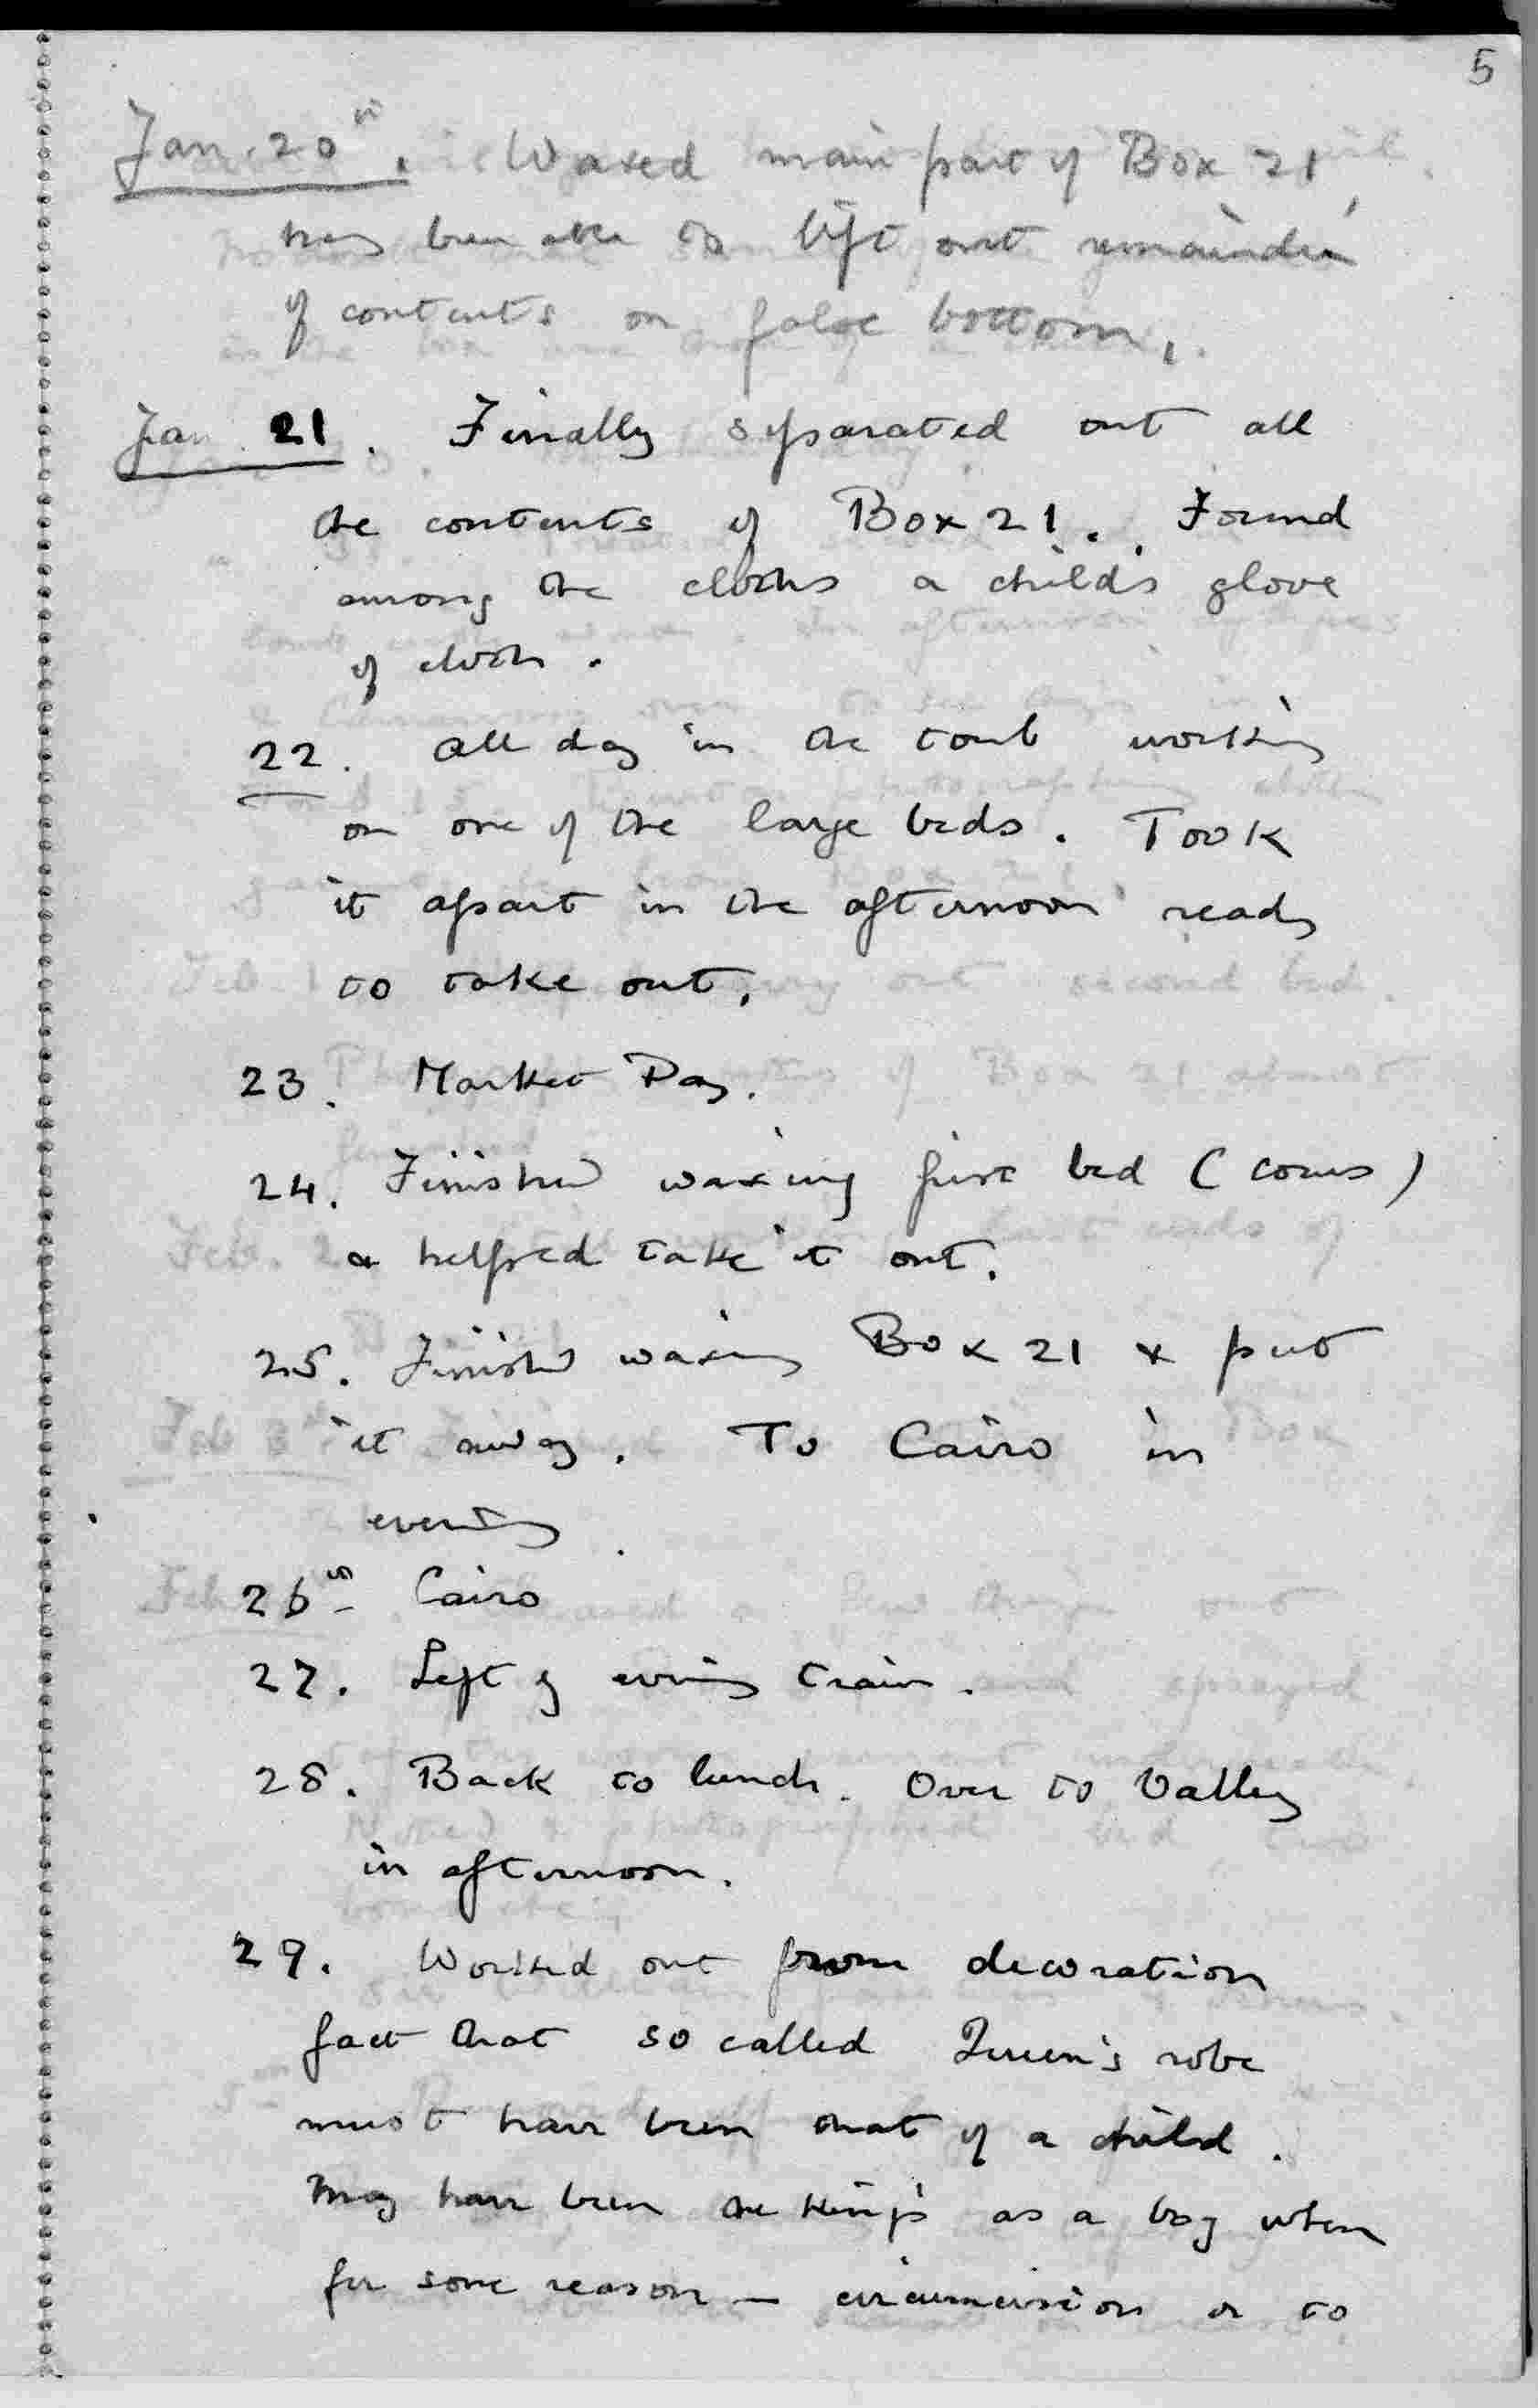 5
Jan. 20th. Waxed main part of Box 21,
having been able to lift out remainder
of contents on false bottom.
Jan. 21. Finally separated out all
the contents of Box 21. Found
among the cloths a child's glove
of cloth.
22. All day in the tomb working
on one of the large beds. Took
it apart in the afternoon ready
to take out.
23. Market Day.
24. Finished waxing first bed (cows)
& helped take it out.
25. Finished waxing Box 21 & put
it away. To Cairo in
evening.
26th Cairo
27. Left by evening train.
28. Back to lunch. Over to Valley
in afternoon.
29. Worked out from decoration
fact that so called Queen's robe
must have been that of a child.
May have been the king's as a boy when
for some reason – circumcision or to